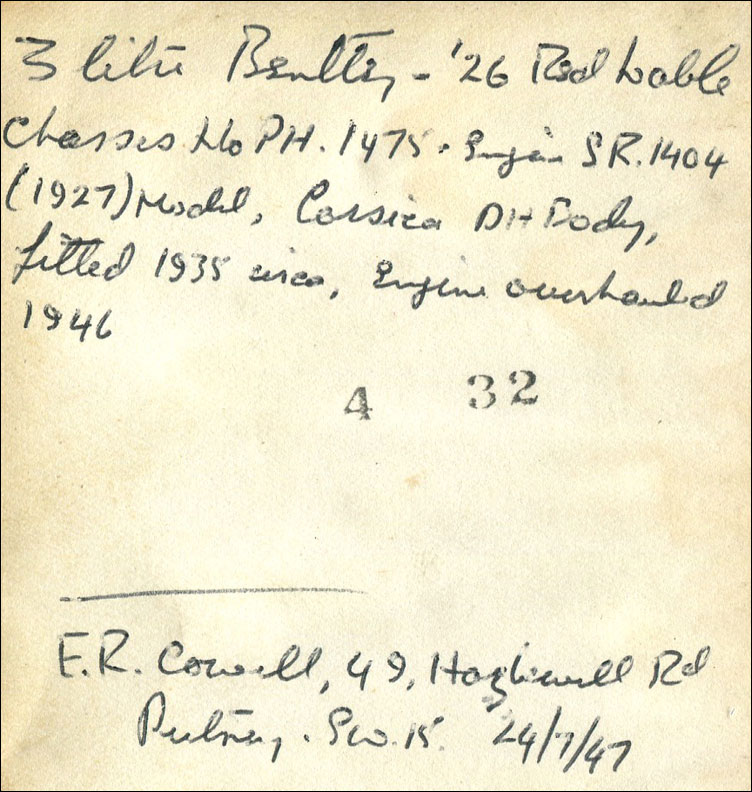 3 litre Bentley - '26 Red Lable
Chassis No PH. 1475 . Engin SR. 1404
(1927) Model, Corsica DH Body,
fitted 1935 circa, Engine overhauled
1946
4 32
E.R. Cowell, 49, Hazlewell Rd
Putney . SW. 15. 24/7/47